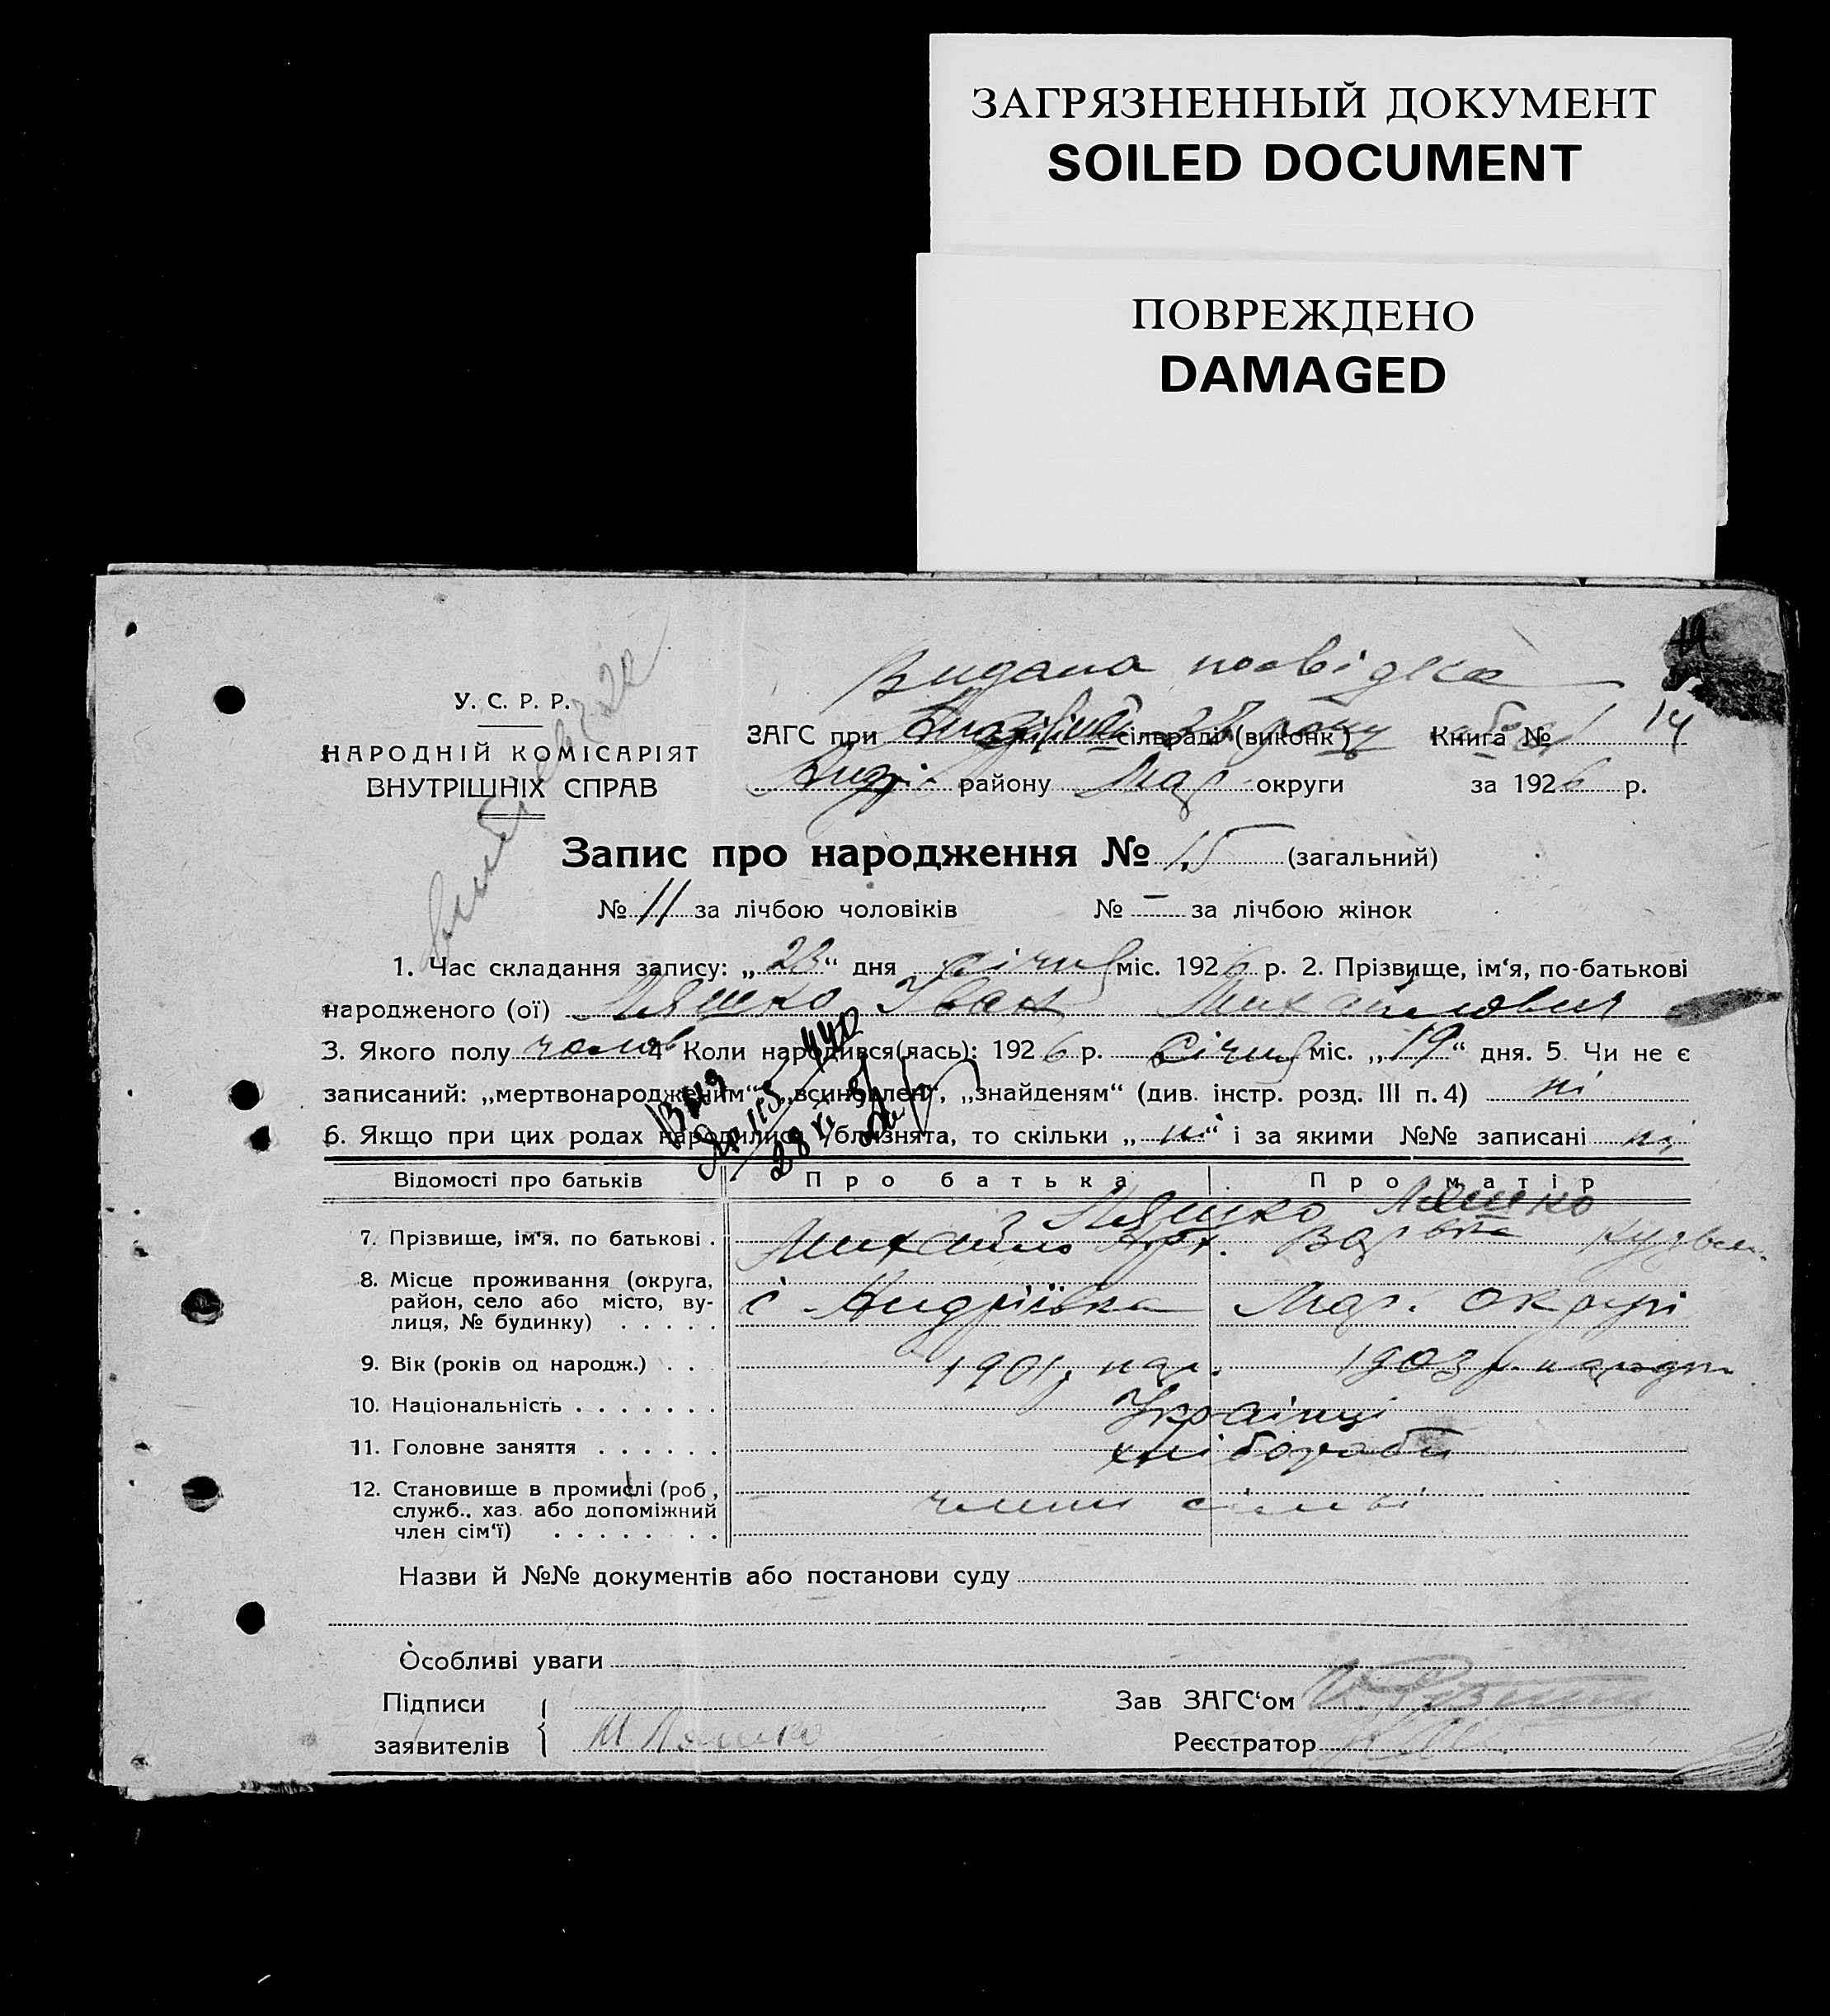 ЗАГРЯЗНЕННЫЙ ДОКУМЕНТ
SOILED DOCUMENT
ПОВРЕЖДЕНО
DAMAGED
Видана посвідка
14
У. С. Р. Р.
НАРОДНІЙ КОМІСАРІЯТ
ВНУТРІШНІХ СПРАВ
ЗАГС при сільраді (виконк.) Книга №
Андр. району Мар. округи за 1926 р.
Запис про народження № 15 (загальний)
№ 11 за лічбою чоловіків № – за лічбою жінок
1. Час складання запису: „23“ дня січня міс. 1926 р. 2. Прізвище, ім‘я, по-батькові
народженого (ої) Ляшко Іван Михайлович
3. Якого полу чолов 4 Коли народився(лась): 1926 р. Січня міс. „19“ дня. 5. Чи не є
записаний: „мертвонародженим“, „всиновлен“, „знайденям“ (див. інстр. розд. III п. 4) ні
6. Якщо при цих родах народилися близнята, то скільки „ні“ і за якими №№ записані ні
Відомості про батьків Про батька Про матір
Ляшко Ляшко
7. Прізвище, ім‘я, по батькові . Михайло Варвара
8. Місце проживання (округа, район, село або місто, вулиця, № будинку) . . . . . с Андріївка Мар. округи
9. Вік (років од народж.) . . . 1901 р. нар. 1903 р. народж
10. Національність . . . . . . . Українці
11. Головне заняття . . . . . . хлібороби
12. Становище в промислі (роб., служб., хаз. або допоміжний член сім‘ї) . . . . . . . . члени сімї
Назви й №№ документів або постанови суду
Особливі уваги
Підписи
заявителів
М Ляшко
Зав ЗАГС‘ом
Реєстратор